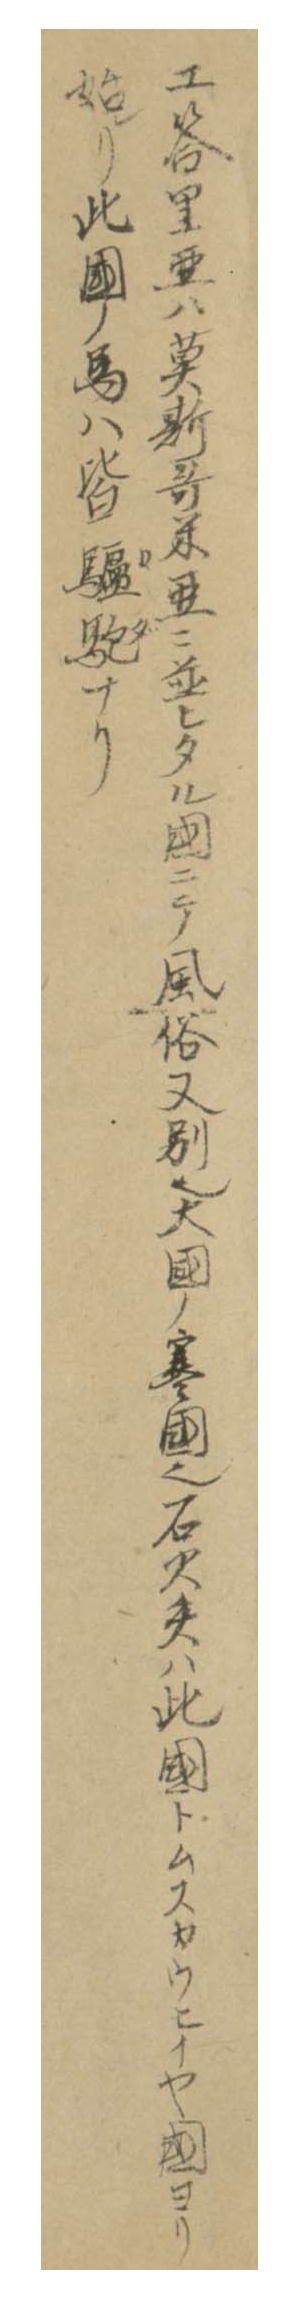 工答里亜ハ莫斯哥米亜ニ並ヒタル國ニテ風俗又別也大國ノ寒國也石火矢ハ此國トムスカウヒイヤ國ヨリ
始リ此國ノ馬ハ皆驅駝ナリ